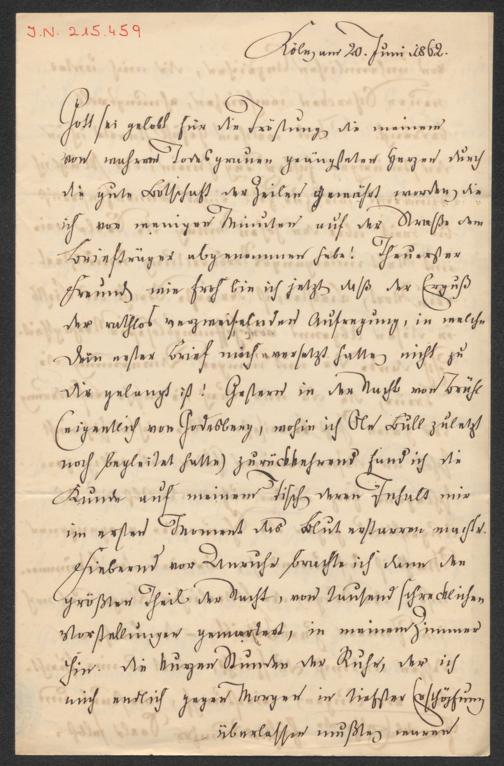 J.N. 215.459
Köln am 20. Juni 1862.
Gott sei gelobt für die Tröstung, die meinem
von wahrem Todesgrauen geängsteten Herzen durch
die gute Botschaft der Zeilen gewährt worden, die
ich vor wenigen Minuten auf der Straße dem
Briefträger abgenommen habe! Theuerster
Freund, wie froh bin ich jetzt, daß der Erguß
der rathlos verzweifelnden Aufregung, in welche
Dein erster Brief mich versetzt hatte, nicht zu
Dir gelangt ist! Gestern in der Nacht von Brühl
(eigentlich von Godesberg, wohin ich Ole Bull zuletzt
noch begleitet hatte) zurückkehrend fand ich die
Kunde auf meinem Tisch, deren Inhalt mir
im ersten Moment das Blut erstarren machte.
Fiebernd vor Unruhe brachte ich dann den
größten Theil der Nacht, von tausend schrecklichen
Vorstellungen gemartert, in meinem Zimmer
hin. Die kurzen Stunden der Ruhe, der ich
mich endlich gegen Morgen in tiefster Erschöpfung
überlassen mußte, waren